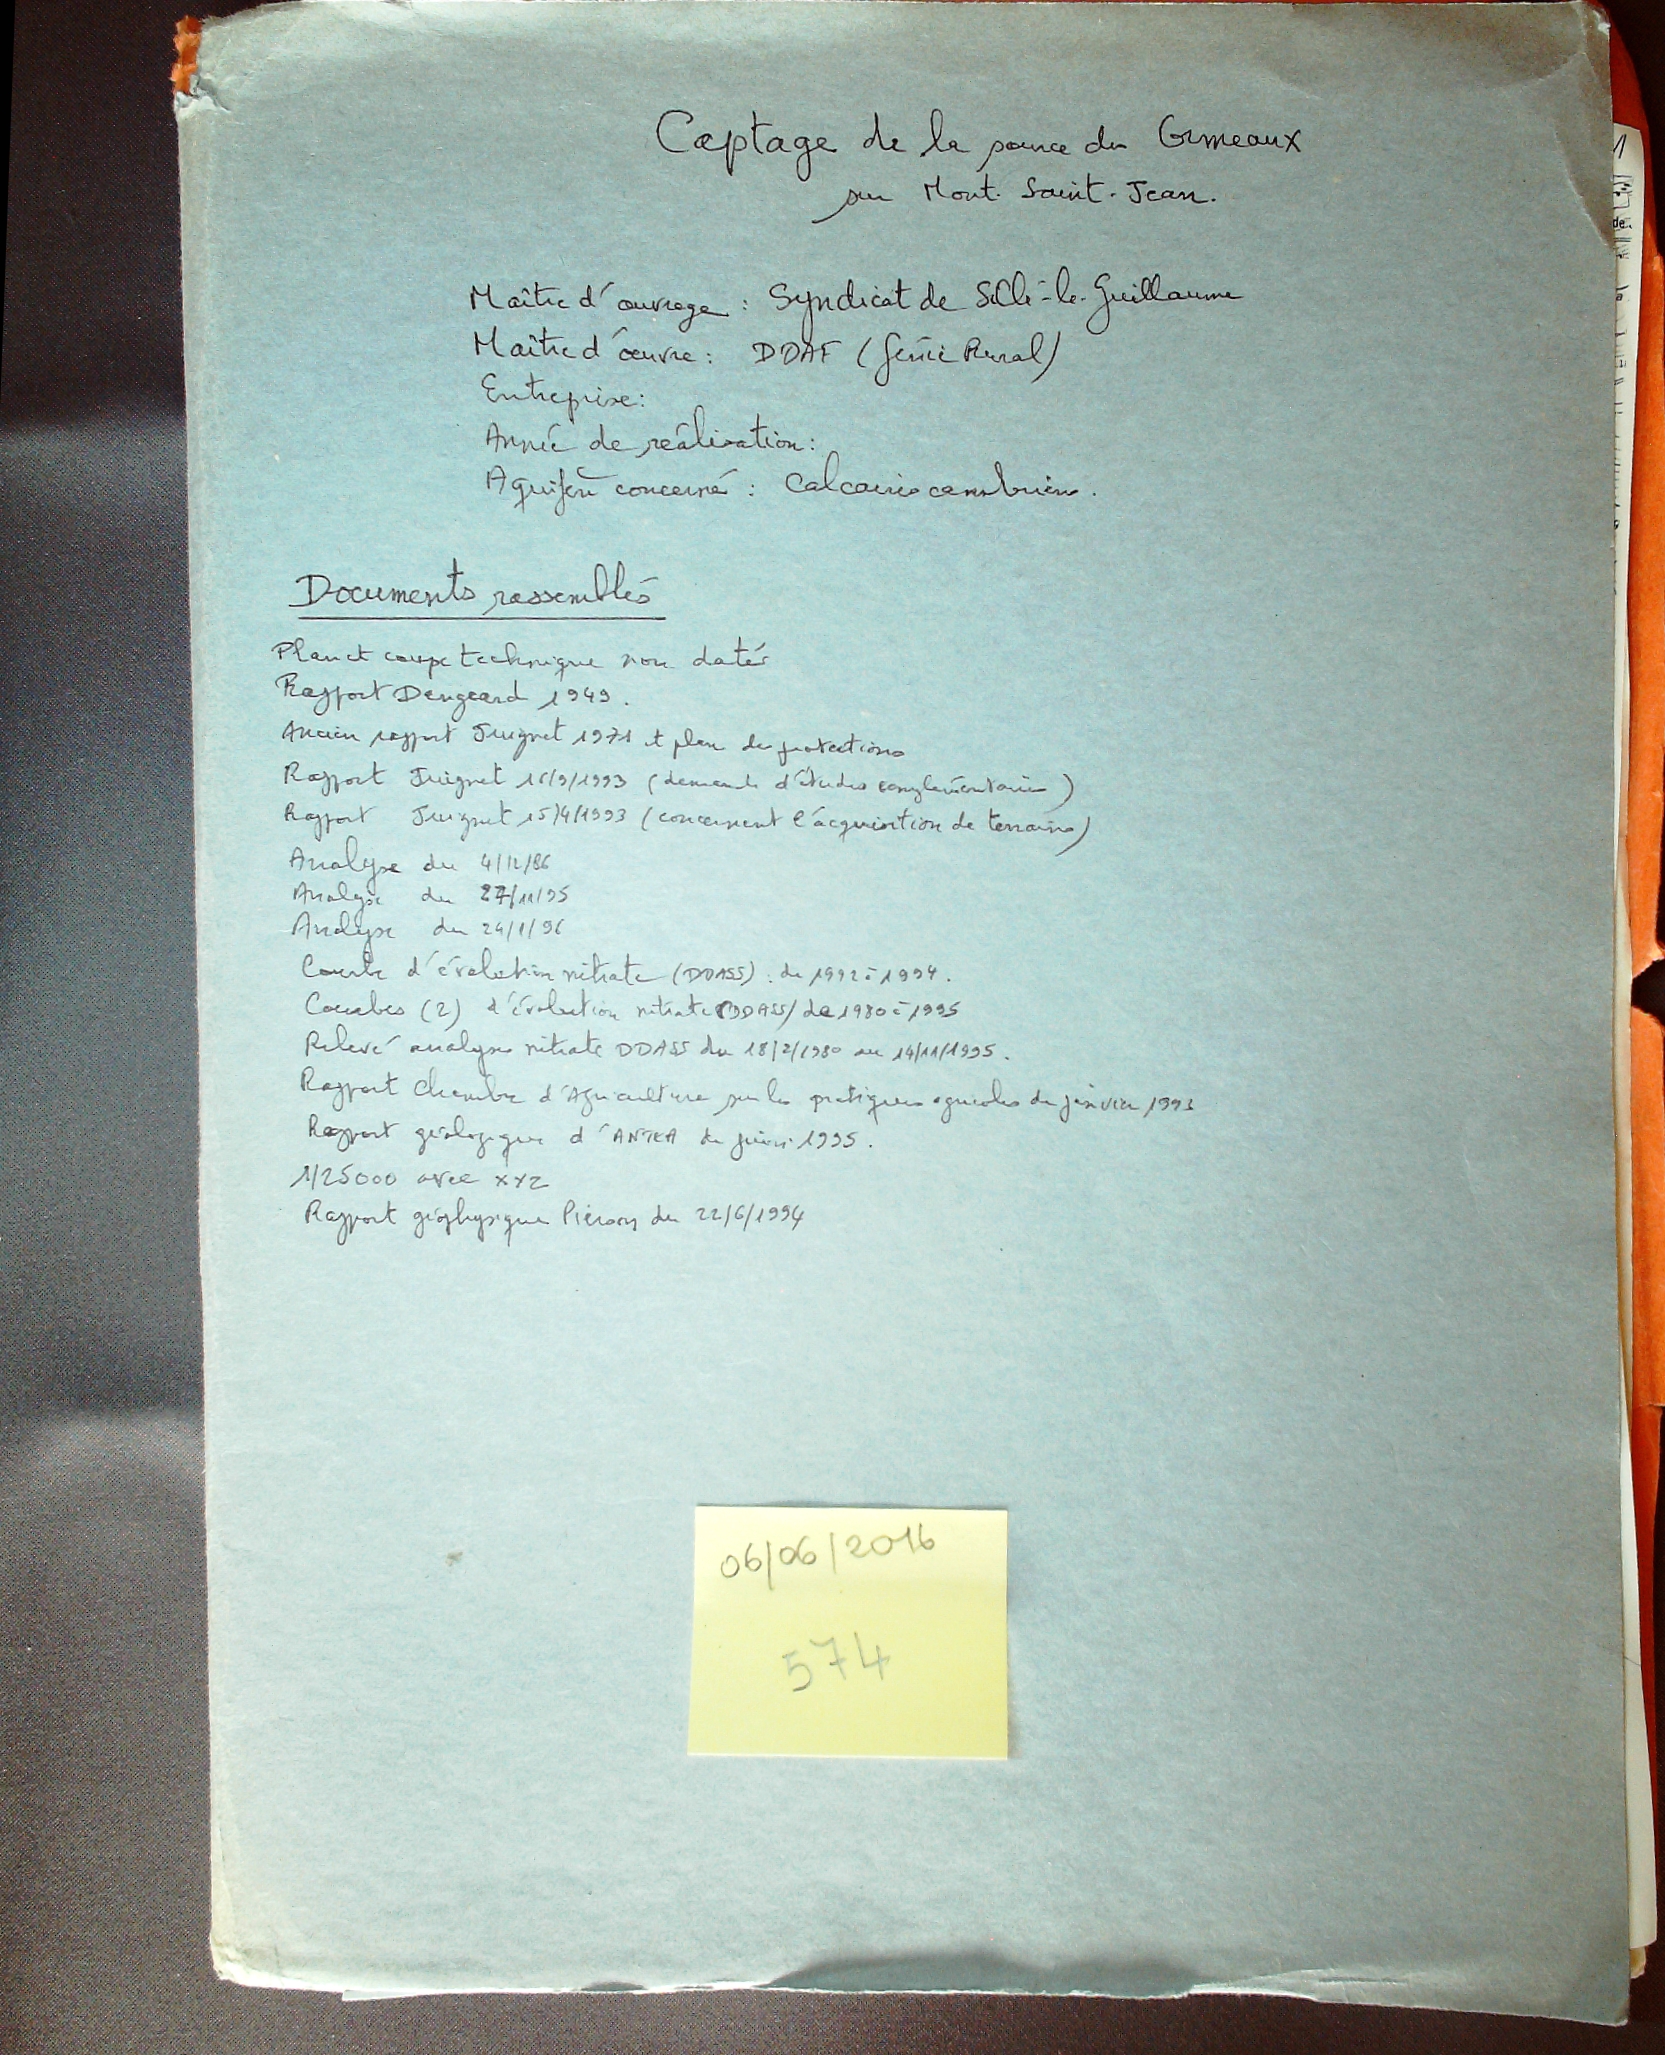 Captage de la source des Ormeaux
sur Mont-Saint-Jean.
Maître d'ouvrage : Syndicat de Sillé-le-Guillaume
Maître d'œuvre : DDAF (Génie Rural)
Entreprise :
Année de réalisation :
Aquifère concerné : Calcaires cambriens.
Documents rassemblés
Plan et coupe technique non datés
Rapport Dangeard 1949.
Ancien rapport Juignet 1971 et plan des protections
Rapport Juignet /9/1993 (demande d'études complémentaires)
Rapport Juignet 15/4/1993 (concernant l'acquisition de terrains)
Analyse du 4/12/86
Analyse du 27/11/95
Analyse du 24/1/96
Courbe d'évolution nitrate (DDASS) : de 1992 à 1994.
Courbes (2) d'évolution nitrate (DDASS) de 1980 à 1995
Relevé analyses nitrate DDASS du 18/2/1980 au 14/11/1995.
Rapport Chambre d'Agriculture sur les pratiques agricoles de janvier 1993
Rapport géologique d'ANTEA de juin 1995.
1/25000 avec xyz
Rapport géophysique Pierson du 22/6/1994
06/06/2016
574
1
de